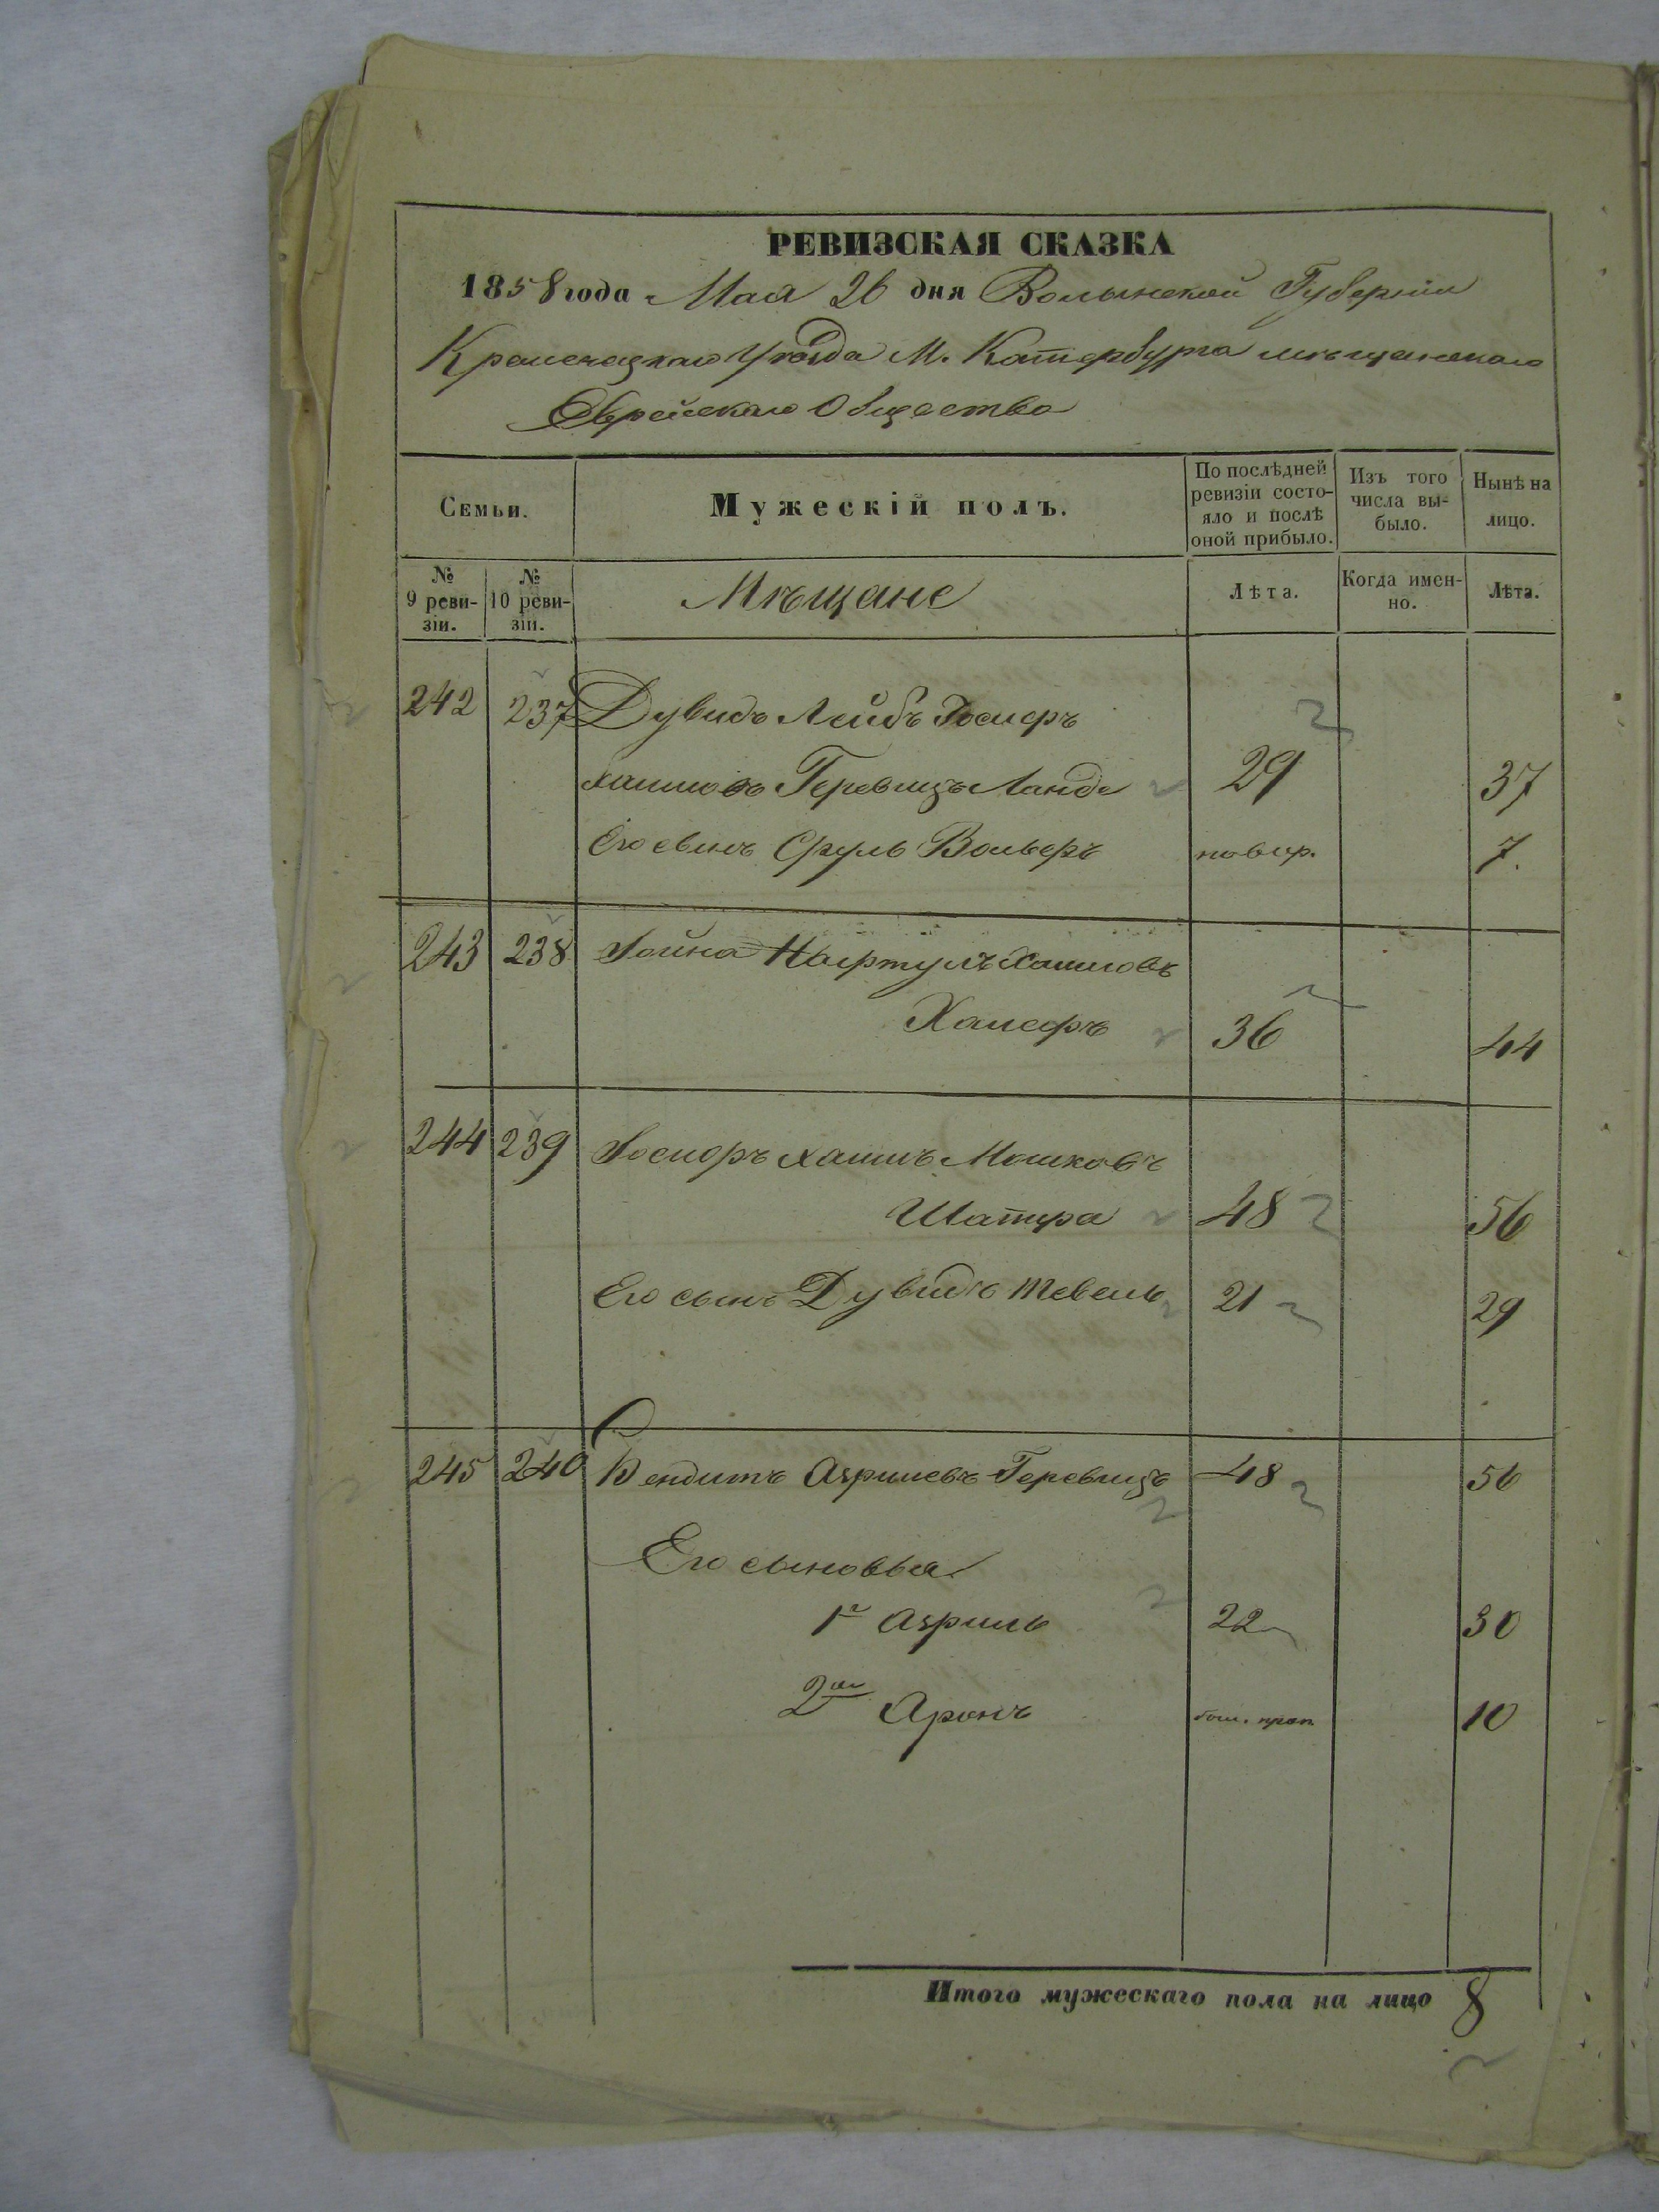 РЕВИЗСКАЯ СКАЗКА
1858 года Мая 26 дня Волынской Губерніи
Кременецкаго Уѣзда М. Катербурга мѣщанскаго
Еврейскаго Общества
Семьи.
Мужескій полъ.
По послѣдней ревизіи состо-яло и послѣ оной прибыло.
Изъ того числа вы-было.
Нынѣ на лицо.
№ 9 реви-зіи.
№ 10 реви-зіи.
Мѣщане
Лѣта.
Когда имен-но.
Лѣта.
242 237 Дувидъ Лейбъ Іосиеръ
Хаимовъ Геревицъ Ланде 29 37
Его сынъ Сруль Вольфъ новор. 7.
243 238 Іойна Нафтулъ Хаимовъ
36 44
244 239 Іосифъ Хаимъ Мошковъ
Шапира 48 56
Его сынъ Дувидъ Тевель 21 29
245 240 Бендитъ Азрилевъ Геревицъ 48 56
Его сыновья
1й Азриль 22 30
2ой Аронъ проп 10
Итого мужескаго пола на лицо 8